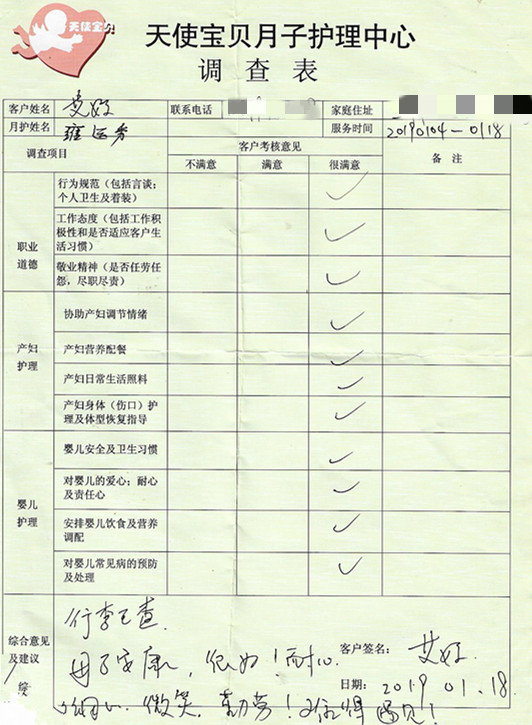 天使宝贝
天使宝贝月子护理中心
调查表
客户姓名 艾好 联系电话 家庭住址
月护姓名 服务时间 20190104-0118
调查项目 客户考核意见 备注
不满意 满意 很满意
职业道德
行为规范（包括言谈；个人卫生及着装）
工作态度（包括工作积极性和是否适应客户生活习惯）
敬业精神（是否任劳任怨，尽职尽责）
产妇护理
协助产妇调节情绪
产妇营养配餐
产妇日常生活照料
产妇身体（伤口）护理及体型恢复指导
婴儿护理
婴儿安全及卫生习惯
对婴儿的爱心；耐心及责任心
安排婴儿饮食及营养调配
对婴儿常见病的预防及处理
综合意见及建议
行李已查
很好！耐心
细心、微笑、勤劳！值得遇见！
客户签名：艾好
日期：2019 01.18